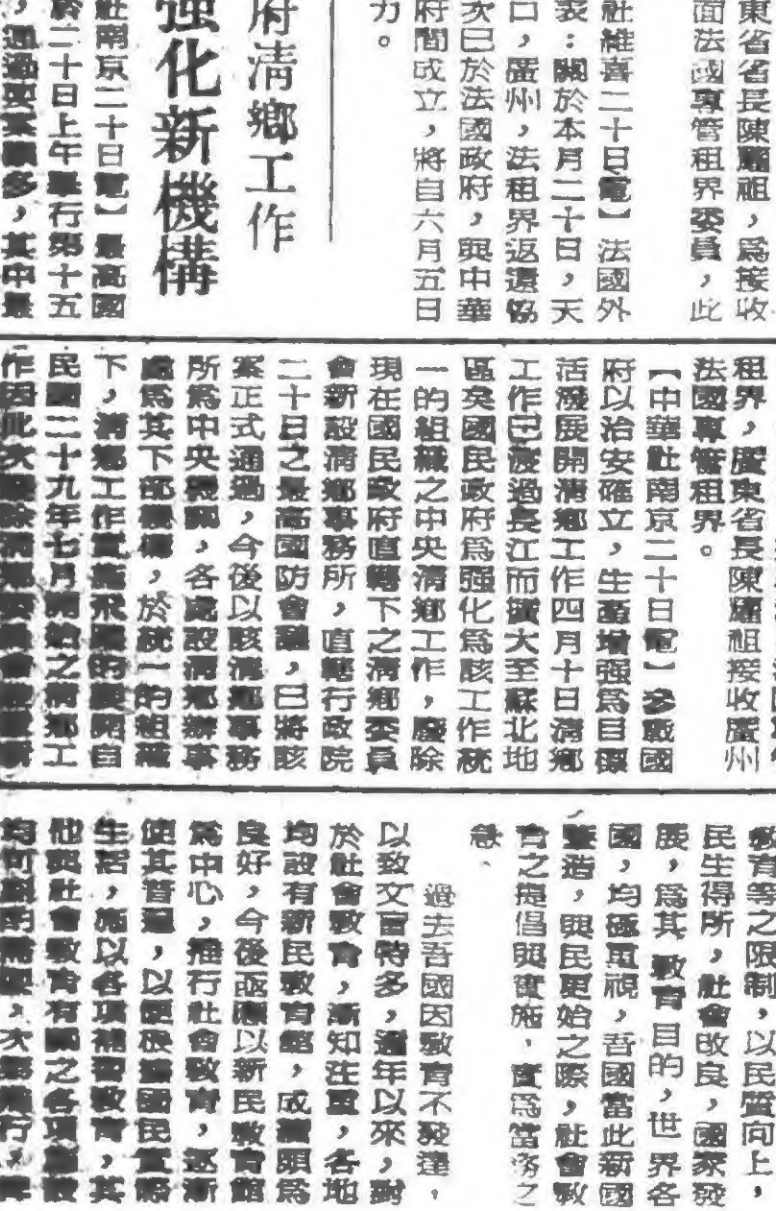 東省省長陳耀祖，爲接收
面法國專管租界委員，此
社維喜二十日電】法國外
表：關於本月二十日，天
口，廣州，法租界返還協
次已於法國政府，與中華
府間成立，將自六月五日
力。
府清鄉工作
强化新機構
社南京二十日電】最高國
於二十日上午舉行第十五
，通過要案頗多，其中最
租界，廣東省長陳耀祖接收廣州
法國專管租界。
【中華社南京二十日電】參戰國
府以治安確立，生產增强爲目標
活潑展開清鄉工作四月十日清鄉
工作已渡過長江而擴大至蘇北地
區矣國民政府爲强化爲該工作統
一的組織之中央清鄉工作，廢除
現在國民政府直轄下之清鄉委員
會新設清鄉事務所，直轄行政院
二十日之最高國防會議，已將該
案正式通過，今後以該清鄉事務
所爲中央機關，各處設清鄉辦事
處爲其下部機構，於統一的組織
下，清鄉工作實施飛躍的展開自
民國二十九年七月開始之清鄉工
作因此次廢除清鄉委員會
教育等之限制，以民質向上，
民生得所，社會改良，國家發
展，爲其教育目的，世界各
國，均極重視，吾國當此新國
肇造，與民更始之際，社會教
育之提倡與實施，實爲當務之
急、
過去吾國因教育不發達，
以致文盲特多，邇年以來，對
於社會教育，漸知注重，各地
均設有新民教育館，成績頗爲
良好，今後亟應以新民教育館
爲中心，推行社會教育，逐漸
使其普遍，以便根據國民實際
生活，施以各項補習教育，其
他與社會教育有關之各項
均可